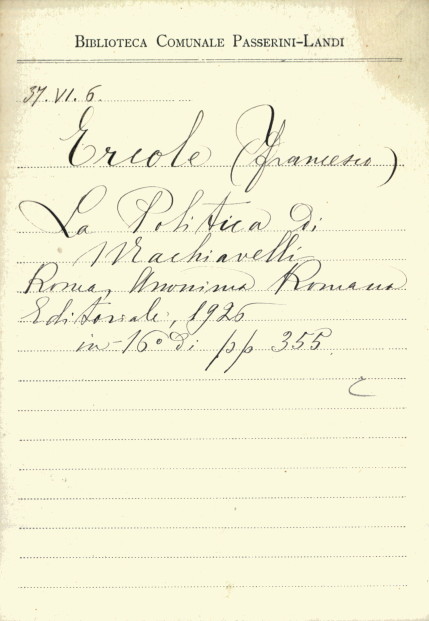 BIBLIOTECA COMUNALE PASSERINI-LANDI
37. VI. 6.
Ercole (Francesco)
La Politica di
Machiavelli
Roma, Anonima Romana
Editoriale, 1926
in-16º di pp 355.
c